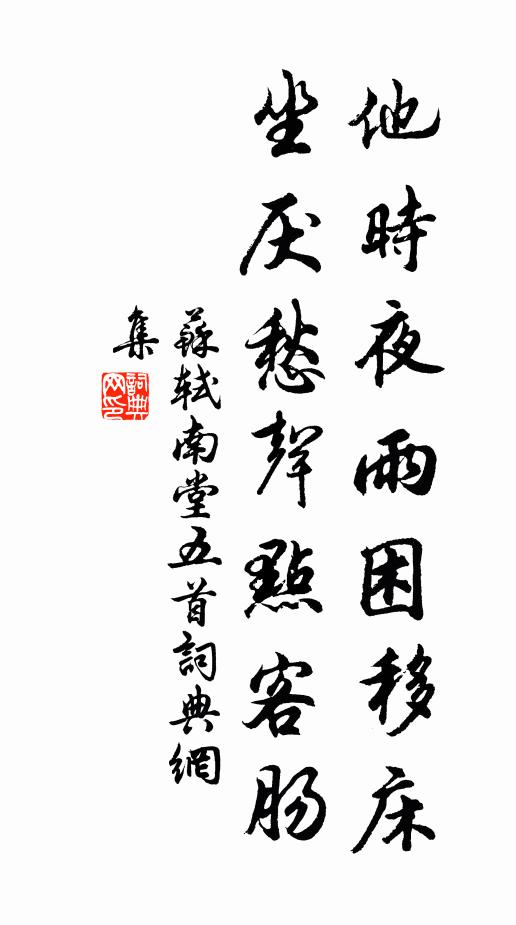 他時夜雨困移床
坐厌愁聲點客肠
蘇軾南堂五首詞典網
集
詞典
网印